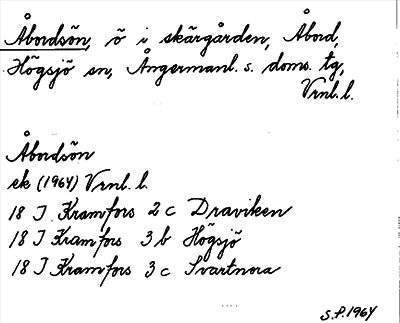 Åbordsön, ö i skärgården, Åbord,
Högsjö sn, Ångermanl. s. doms. tg,
Vrnl. l.
Åbordsön
ek (1964) Vrnl. l.
18 I Kramfors 2 c Draviken
18 I Kramfors 3 b Högsjö
18 I Kramfors 3 c Svartnora
S.P. 1964